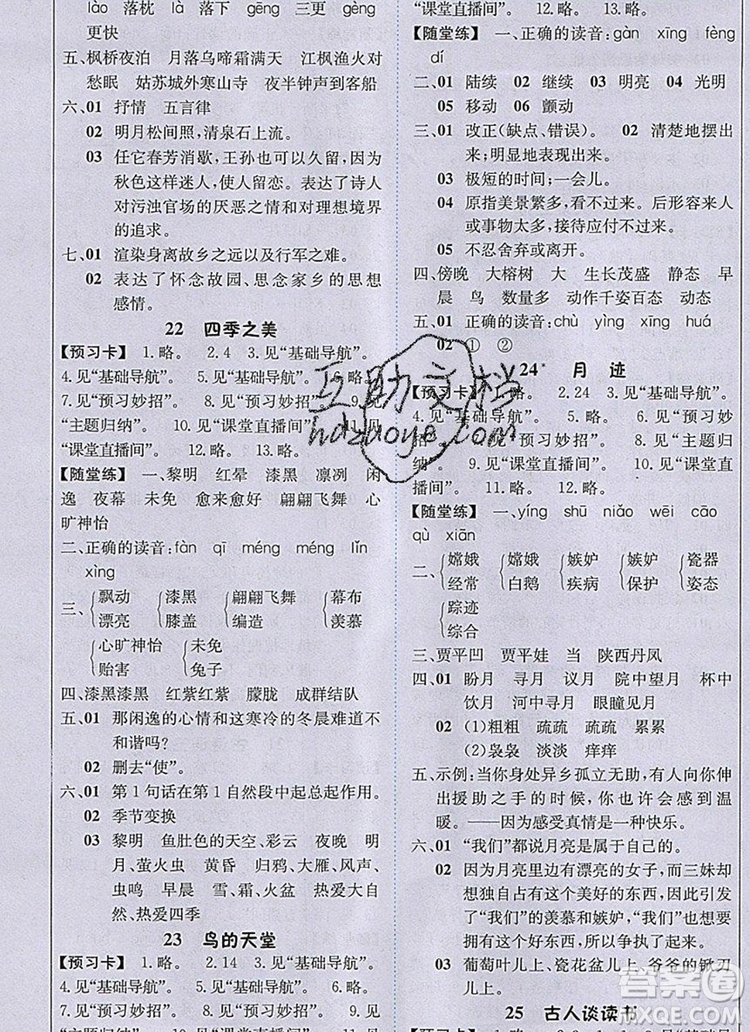 lào　落枕　là　落下　gēng　三更　gèng
更快
五、枫桥夜泊　月落乌啼霜满天　江枫渔火对
愁眠　姑苏城外寒山寺　夜半钟声到客船
六、01　抒情　五言律
02　明月松间照，清泉石上流。
03　任它春芳消歇，王孙也可以久留，因为
秋色这样迷人，使人留恋。表达了诗人
对污浊官场的厌恶之情和对理想境界
的追求。
七、01　渲染身离故乡之远以及行军之难。
02　表达了怀念故园、思念家乡的思想
感情。
22　四季之美
【预习卡】　1.略。　2.4　3.见“基础导航”。
4.见“基础导航”。　5.略。　6.见“基础导航”。
7.见“预习妙招”。　8.见“预习妙招”。　9.见
“主题归纳”。　10.见“课堂直播间”。　11.略。
12.略。
【随堂练】　一、黎明　红晕　漆黑　凛冽　闲
逸　夜幕　未免　愈来愈好　翩翩飞舞　心
旷神怡
二、正确的读音：fàn　qī　méng　méng　lǐn
xìng
三、{飘动　漂亮　{漆黑　膝盖　{翩翩飞舞　编造　{幕布　羡慕
{心旷神怡　贻害　{未免　兔子
四、漆黑漆黑　红紫红紫　朦胧　成群结队
五、01　那闲逸的心情和这寒冷的冬晨难道不
和谐吗？
02　删去“使”。
六、01　第1句话在第1自然段中起总起作用。
02　季节变换
03　黎明　鱼肚色的天空、彩云　夜晚　明
月、萤火虫　黄昏　归鸦、大雁、风声、
虫鸣　早晨　雪、霜、火盆　热爱生
活、热爱四季
23　鸟的天堂
【预习卡】　1.略。　2.14　3.见“基础导航”。
4.见“基础导航”。　5.略。　6.见“基础导航”。
7.见“预习妙招”。　8.见“预习妙招”。　9.见
“课堂直播间”。　12.略。　13.略。
【随堂练】　一、正确的读音：gàn　xīng　fèng
dí
二、01　陆续　02　继续　03　明亮　04　光明
05　移动　06　颤动
三、01　改正（缺点、错误）。　02　清楚地摆出
来；明显地表现出来。
03　极短的时间；一会儿。
04　原指美景繁多，看不过来。后形容来人
或事物太多，接待应付不过来。
05　不忍舍弃或离开。
四、傍晚　大榕树　大　生长茂盛　静态　早
晨　鸟　数量多　动作千姿百态　动态
五、01　正确的读音：chù　yìng　xīng　huá
02　①　②
24*　月　迹
【预习卡】　1.略。　2.24　3.见“基础导航”。
4.见“基础导航”。　5.略。　6.略。
7.见“预习妙招”。　8.见“主题归
纳”。　9.见“课堂直播间”。　10.见“课堂直播
间”。　11.略。　12.略。
【随堂练】　一、yíng　shū　niǎo　wēi　cāo
qù　xiān
二、{嫦娥　经常　{嫦娥　白鹅　{嫉妒　疾病　{嫉妒　保护　{瓷器　姿态
{踪迹　综合
三、贾平凹　贾平娃　当　陕西丹凤
四、01　盼月　寻月　议月　院中望月　杯中
饮月　河中寻月　眼瞳见月
02　（1）粗粗　疏疏　疏疏　累累
（2）袅袅　淡淡　痒痒
五、示例：当你身处异乡孤立无助，有人向你伸
出援助之手的时候，你会感受到快乐。
——因为感受真情是一种快乐。
六、01　“我们”都说月亮是属于自己的。
02　因为月亮里有漂亮的女子，而三妹已
经联想到嫦娥也是个美好的东西，因
此引起了“我们”的羡慕和嫉妒，“我们”
拥有这个美好的东西，就会变得更
好。
03　葡萄叶儿上、瓷花盆儿上、爷爷的锨刃
儿上。
25　古人谈读书
【预习卡】　1.略。　2.略。　3.见“基础导航”。　4.见
互助文档
hdzuoye.com
答案圈
MXQE.COM